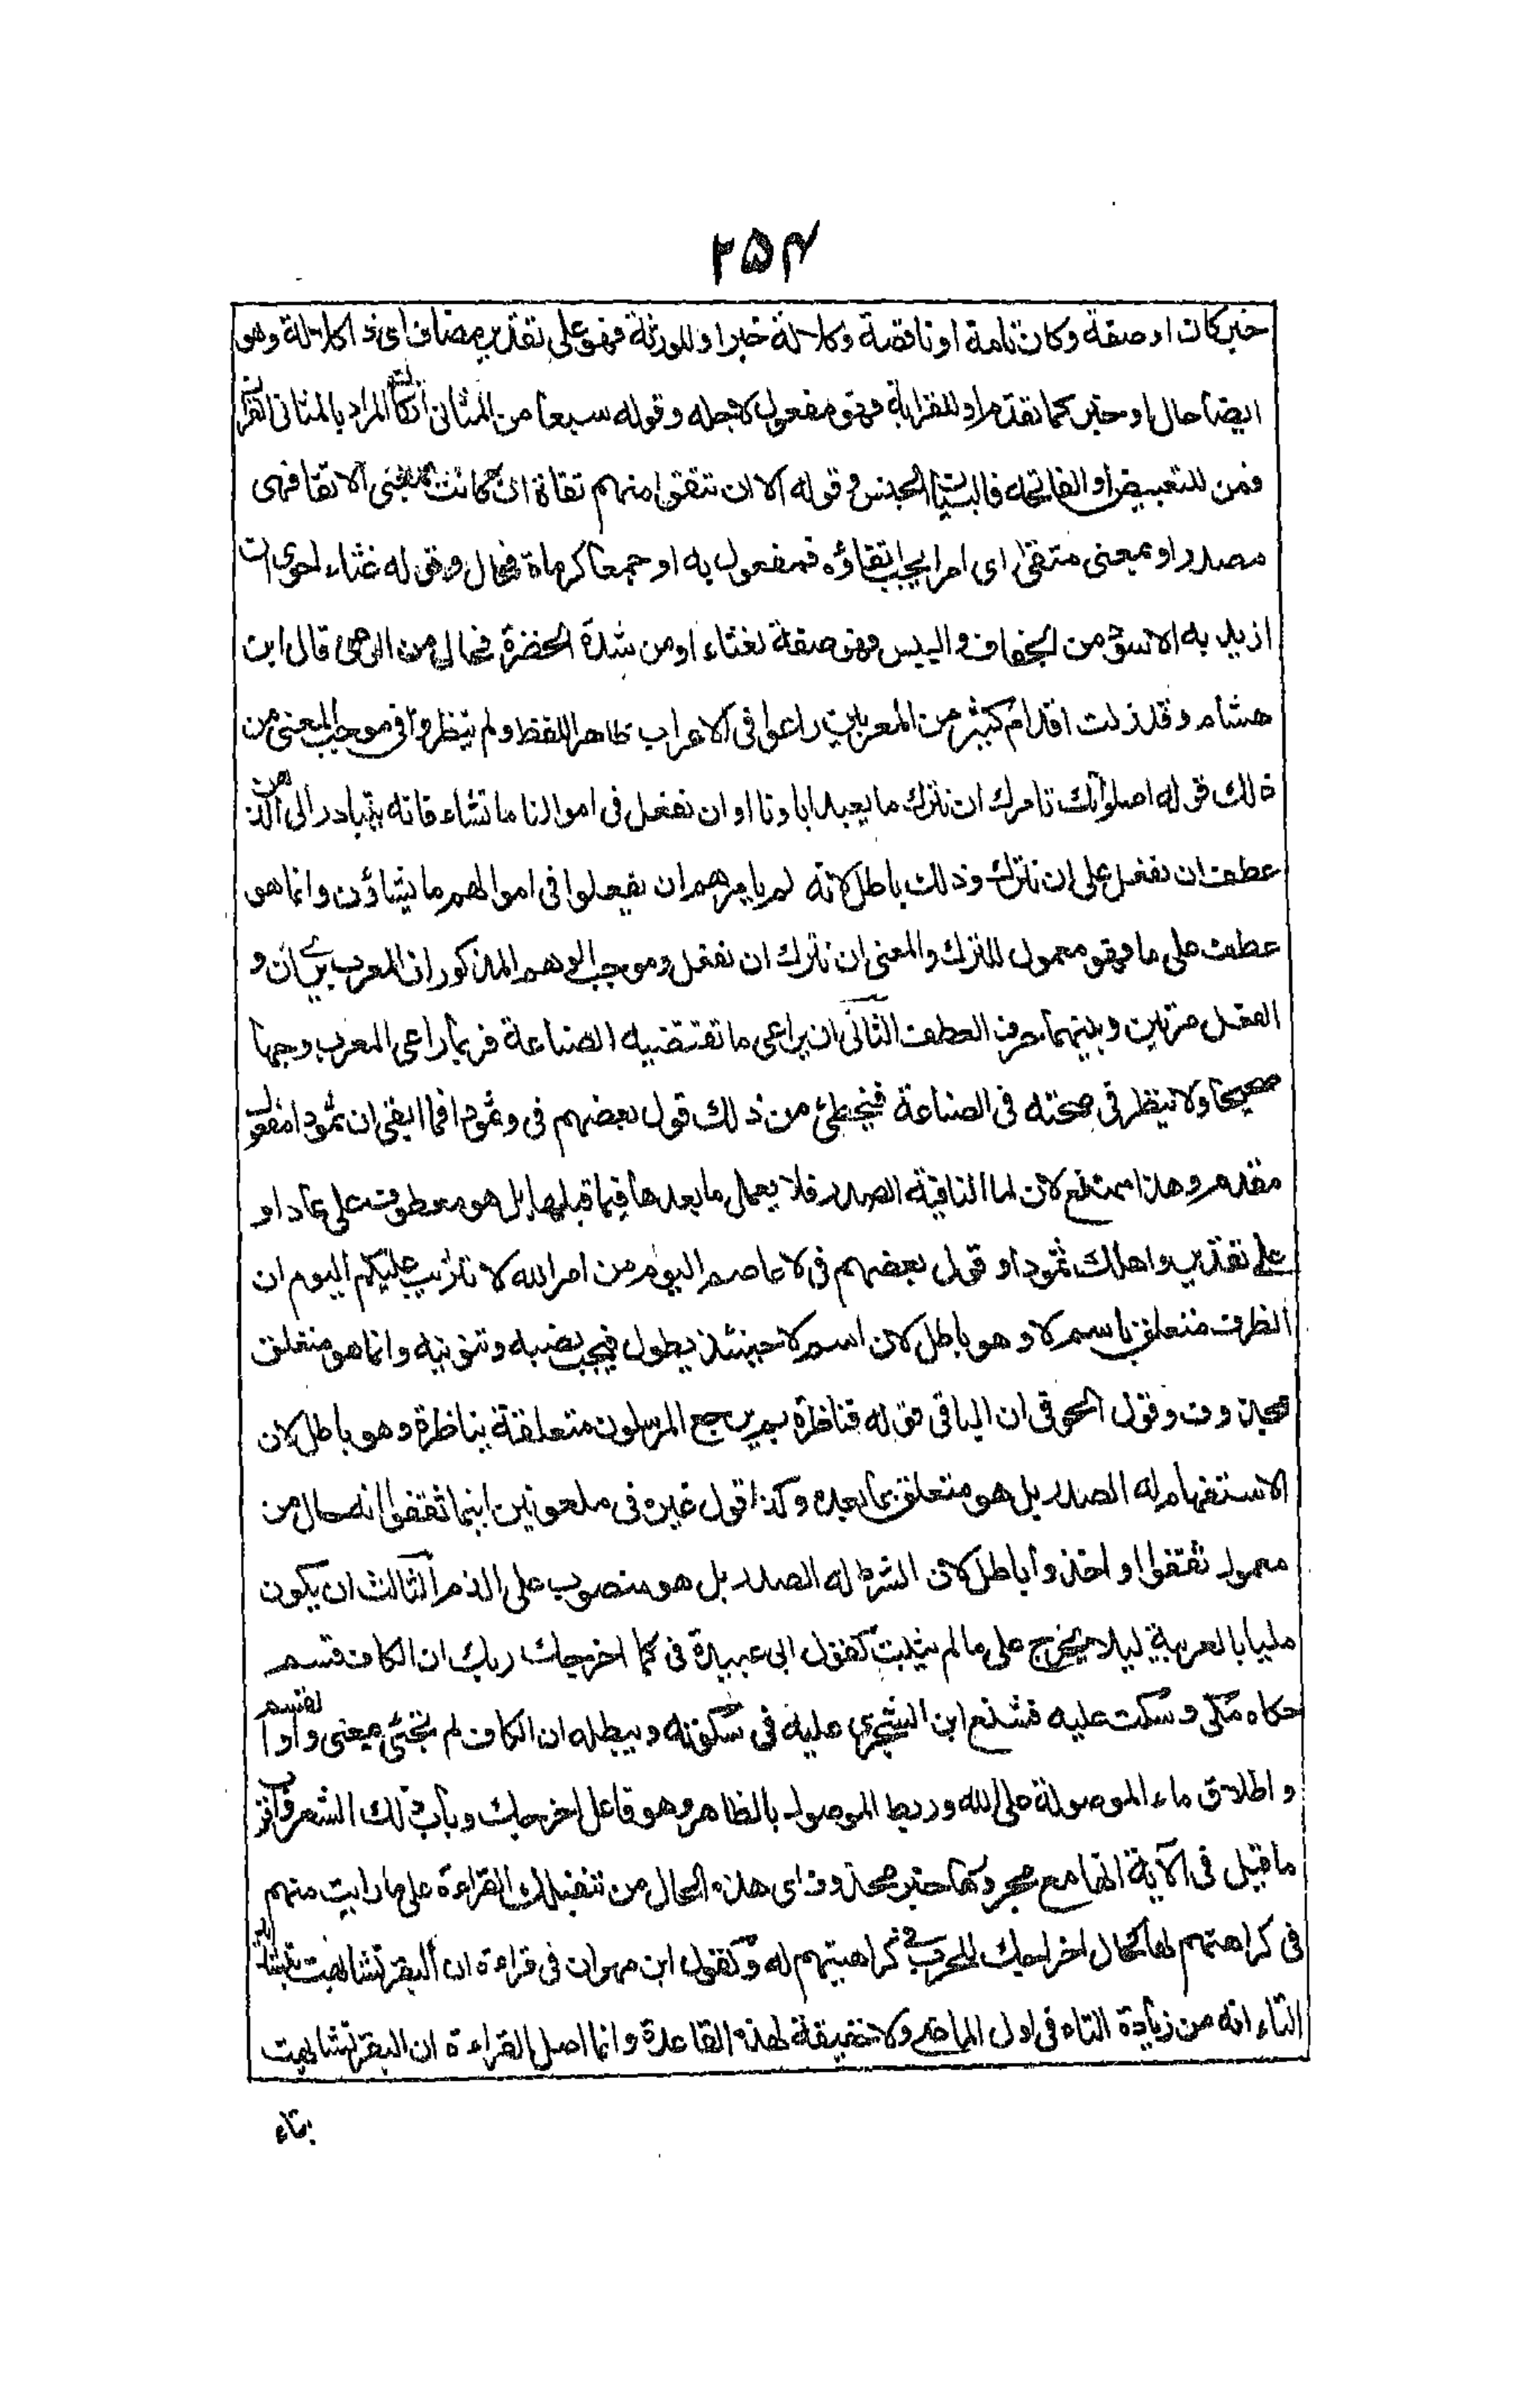 ۲۵۴
خبر كان او صفة وكان تامة او ناقصة وكلالة خبر او للورثة فهو على تقدير مضاف اى ذا كلالة وهو
ايضا حال او خبر كما تقدم او للقرابة فهو مفعول لاجله وقوله سبعا من المثانى ان كان المراد بالمثانى القرآن
فمن للتبعيض او الفاتحة فالبيان الجنس وقوله الا ان تتقوا منهم تقاة ان كانت بمعنى الاتقا فهى
مصدر او بمعنى متقى اى امرا يجب اتقاؤه فمفعول به او جمعا كرماة فحال وقوله غثاء احوى ان
اريد به الاسود من الجفاف واليبس فهو صفة لغثاء او من شدة الخضرة فحال من المرعى قال ابن
هشام وقد زلت اقدام كثير من المعربين راعوا فى الاعراب ظاهر اللفظ ولم ينظروا فى موجب المعنى من
ذلك قوله اصلوتك تامرك ان نترك ما يعبد اباونا او ان نفعل فى اموالنا ما نشاء فانه يتبادر الى الذهن
عطف ان نفعل على ان نترك وذلك باطل لانه لم يامرهم ان يفعلوا فى اموالهم ما يشاؤن وانما هو
عطف على ما فهو معمول للترك والمعنى ان نترك ان نفعل وموجب الوهم المذكور ان المعرب يرى ان و
الفعل مرتين وبينهما حرف العطف الثانى ان يراعى ما تقتضيه الصناعة فربما راعى المعرب وجها
صحيحا ولا ينظر فى صحته فى الصناعة فيخطئ من ذلك قول بعضهم فى وثمودا فما ابقى ان ثمودا مفعول
مقدم وهذا ممتنع لان لما النافية الصدر فلا يعمل ما بعدها فيما قبلها بل هو معطوف على عاد او
على تقدير واهلك ثمودا وقول بعضهم فى لا عاصم اليوم من امر الله لا تثريب عليكم اليوم ان
الظرف متعلق باسم لا وهو باطل لان اسم لا حينئذ يطول فيجب نصبه وتنوينه وانما هو متعلق
بمحذوف وقول الحوفى ان الباقى قوله فناظرة بم يرجع المرسلون متعلقة بناظرة وهو باطل لان
الاستفهام له الصدر بل هو متعلق بما بعده وكذا قول غيره فى ملعونين اينما ثقفوا انه حال من
معمول ثقفوا او اخذوا باطل لان الشرط له الصدر بل هو منصوب على الذم الثالث ان يكون
مليا بالعربية ليلا يخرج على ما لم يثبت كقول ابى عبيدة فى كما اخرجك ربك ان الكاف قسم
حكاه مكى وسكت عليه فشنع ابن الشجرى عليه فى سكوته ويبطله ان الكاف لم تجئ بمعنى واو القسم
واطلاق ماء الموصولة على الله وربط الموصول بالظاهر وهو فاعل اخرجك وباب ذلك الشعر واقرب
ما قيل فى الآية انها مع مجرورها خبر محذوف اى هذه الحال من تنفيلك القراءة على ما رايت منهم
فى كراهتهم لها كحال اخراجك للحرب فى كراهيتهم له وكقول ابن مهران فى قراءة ان البقر تشابهت بتشديد
التاء انه من زيادة التاء فى اول الماضى ولا حقيقة لهذه القاعدة وانما اصل القراءة ان البقر تشابهت
بتاء